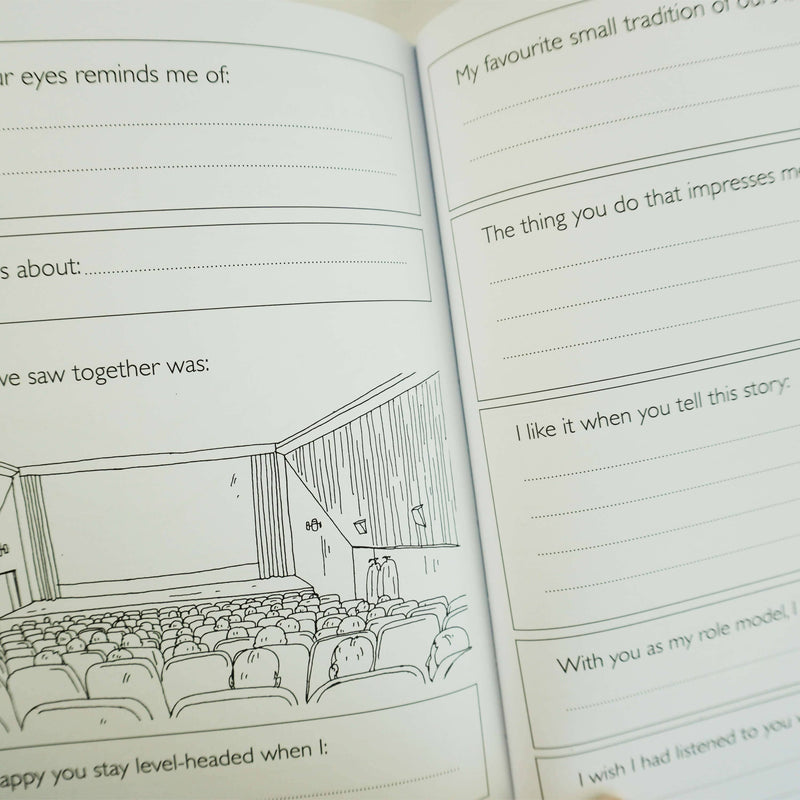 eyes reminds me of:
about:
saw together was:
you stay level-headed when I:
My favourite small tradition of
The thing you do that impresses
I like it when you tell this story:
With you as my role model, I
I wish I had listened to you